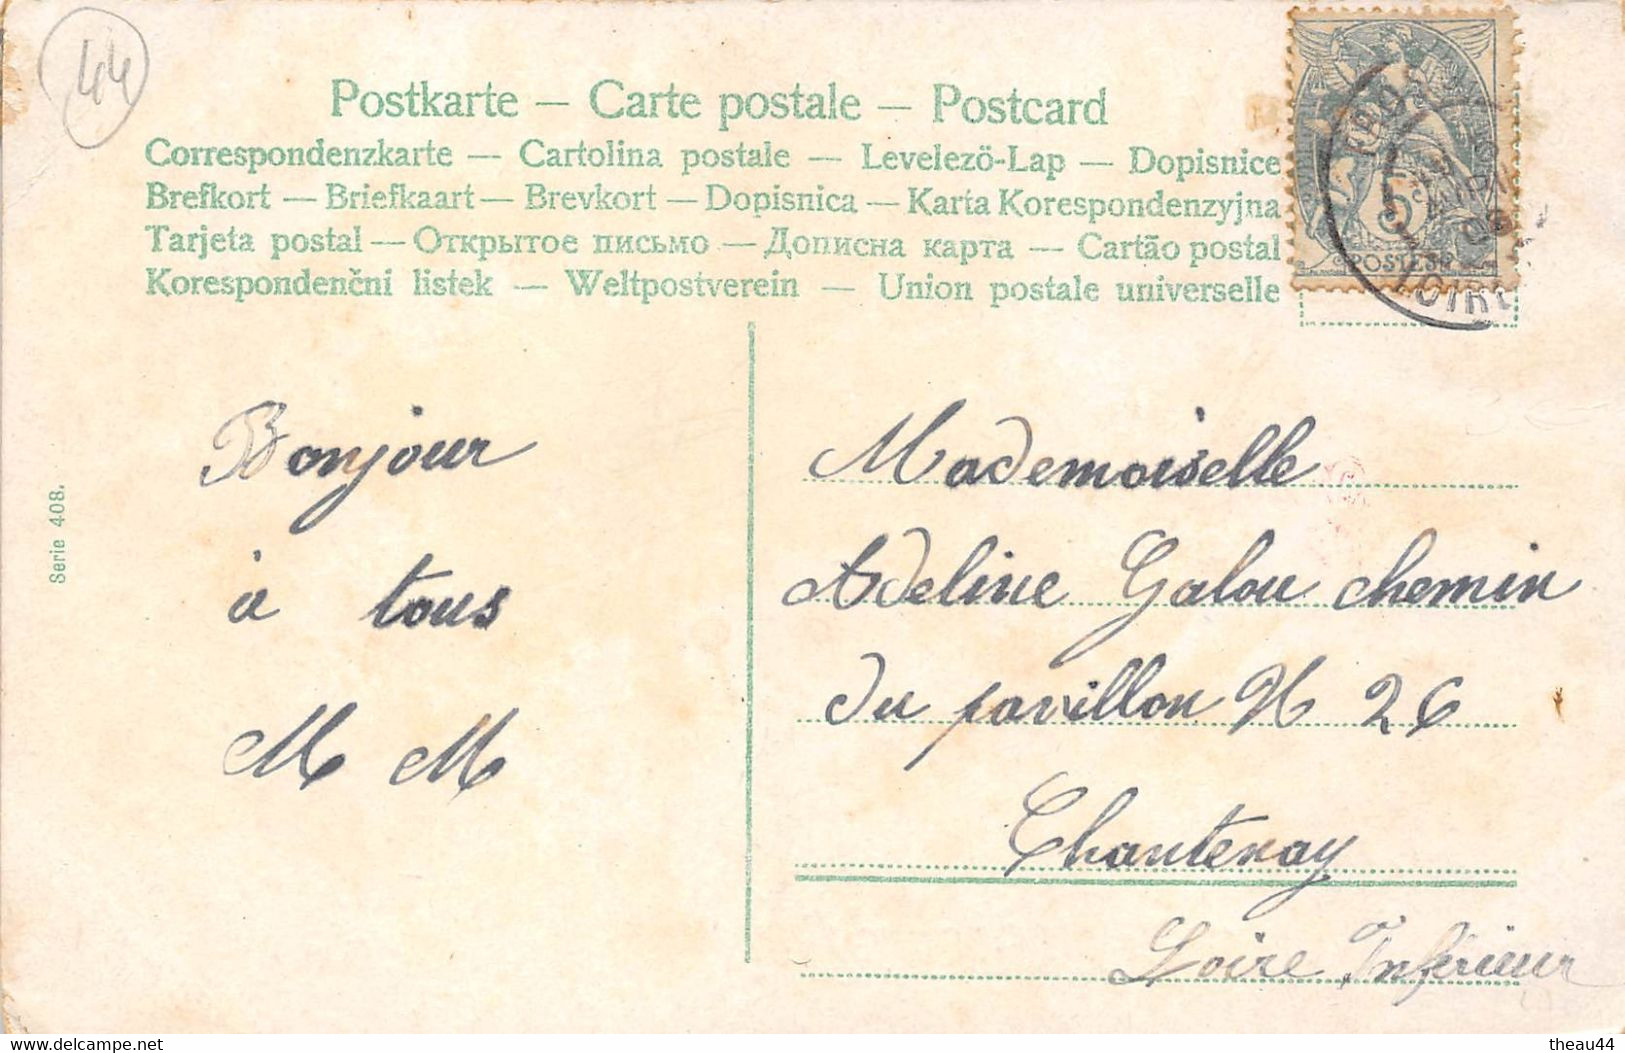 44
Postkarte — Carte postale — Postcard
Correspondenzkarte — Cartolina postale — Levelezö-Lap — Dopisnice
Brefkort — Briefkaart — Brevkort — Dopisnica — Karta Korespondenzyjna
Tarjeta postal — Открытое письмо — Дописна карта — Cartão postal
Korespondenčni listek — Weltpostverein — Union postale universelle
5
POSTES
LOIRE
Serie 408.
Bonjour
à tous
M M
Mademoiselle
Adeline Galou chemin
du pavillon N 26
Chantenay
Loire Inférieur
www.delcampe.net
theau44